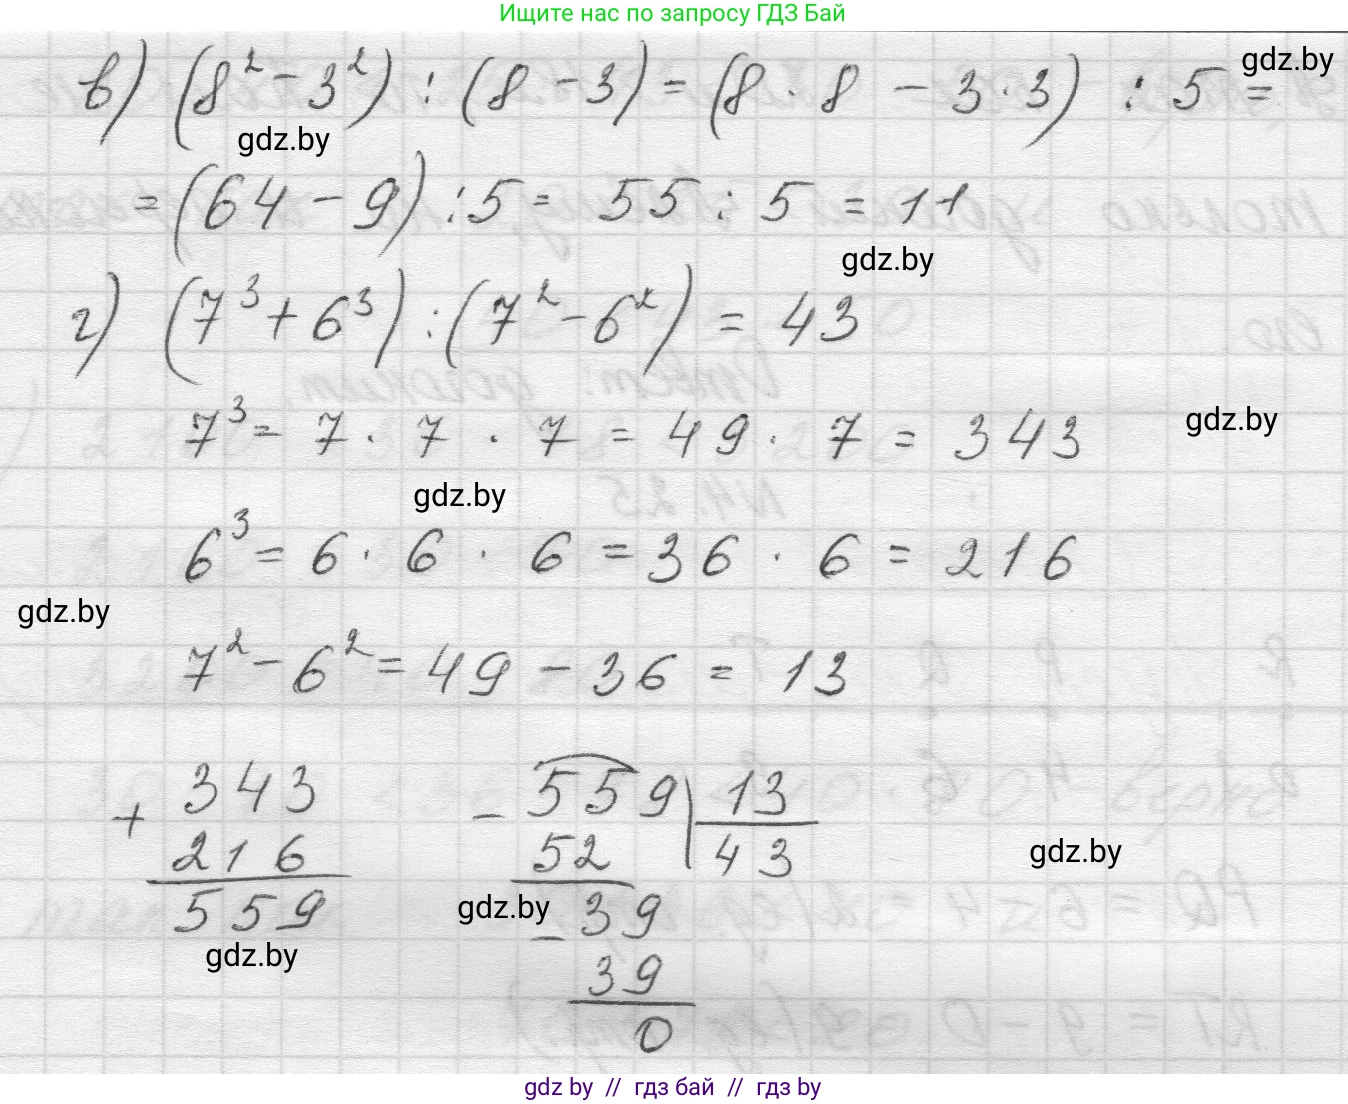 Ищите нас по запросу ГДЗ Бай
gdz.by
в) (8² - 3²) : (8 - 3) = (8 · 8 - 3 · 3) : 5 =
gdz.by
= (64 - 9) : 5 = 55 : 5 = 11
gdz.by
г) (7³ + 6³) : (7² - 6²) = 43
7³ = 7 · 7 · 7 = 49 · 7 = 343
gdz.by
gdz.by
6³ = 6 · 6 · 6 = 36 · 6 = 216
gdz.by
7² - 6² = 49 - 36 = 13
343
+
216
559
gdz.by
- 559 | 13
52 43
gdz.by
gdz.by
- 39
39
0
gdz by // гдз бай // гдз by